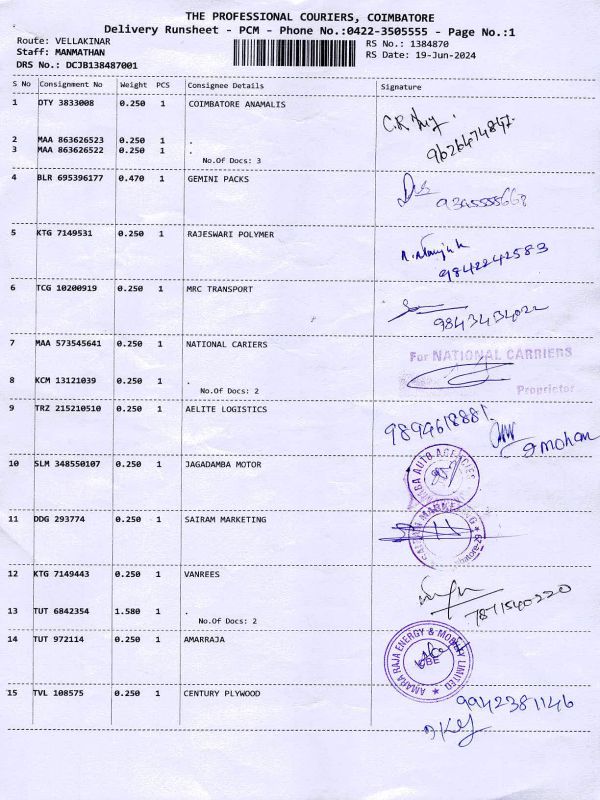 THE PROFESSIONAL COURIERS, COIMBATORE
Delivery Runsheet - PCM - Phone No.:0422-3505555 - Page No.:1
Route: VELLAKINAR
RS No.: 1384870
Staff: MANMATHAN
RS Date: 19-Jun-2024
DRS No.: DCJB138487001
S No Consignment No Weight PCS Consignee Details Signature
1 DTY 3833008 0.250 1 COIMBATORE ANAMALIS
2 MAA 863626523 0.250 1 .
3 MAA 863626522 0.250 1 .
No.Of Docs: 3
4 BLR 695396177 0.470 1 GEMINI PACKS
9345555668
5 KTG 7149531 0.250 1 RAJESWARI POLYMER
9842242583
6 TCG 10200919 0.250 1 MRC TRANSPORT
9843434022
7 MAA 573545641 0.250 1 NATIONAL CARIERS
For NATIONAL CARRIERS
8 KCM 13121039 0.250 1 .
No.Of Docs: 2
Proprietor
9 TRZ 215210510 0.250 1 AELITE LOGISTICS
9894618881
mohan
10 SLM 348550107 0.250 1 JAGADAMBA MOTOR
AUTO AGENCIES
11 DDG 293774 0.250 1 SAIRAM MARKETING
SAIRAM MARKETING
12 KTG 7149443 0.250 1 VANREES
7871540220
13 TUT 6842354 1.580 1 .
No.Of Docs: 2
14 TUT 972114 0.250 1 AMARRAJA
AMARA RAJA ENERGY & MOBILITY LIMITED
CBE
15 TVL 108575 0.250 1 CENTURY PLYWOOD
9942381146